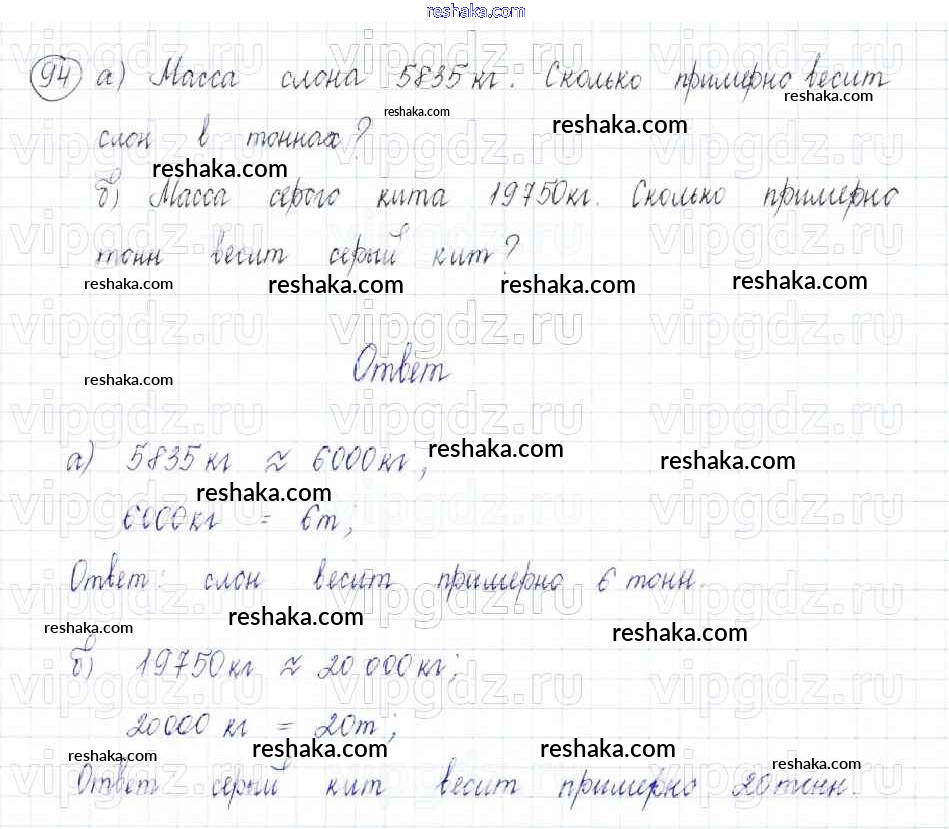 reshaka.com
94 а) Масса слона 5835 кг. Сколько примерно весит
слон в тоннах?
б) Масса серого кита 19750 кг. Сколько примерно
тонн весит серый кит?
Ответ
а) 5835 кг ≈ 6000 кг;
6000 кг = 6 т;
Ответ: слон весит примерно 6 тонн.
б) 19750 кг ≈ 20 000 кг;
20000 кг = 20 т;
Ответ серый кит весит примерно 20 тонн.